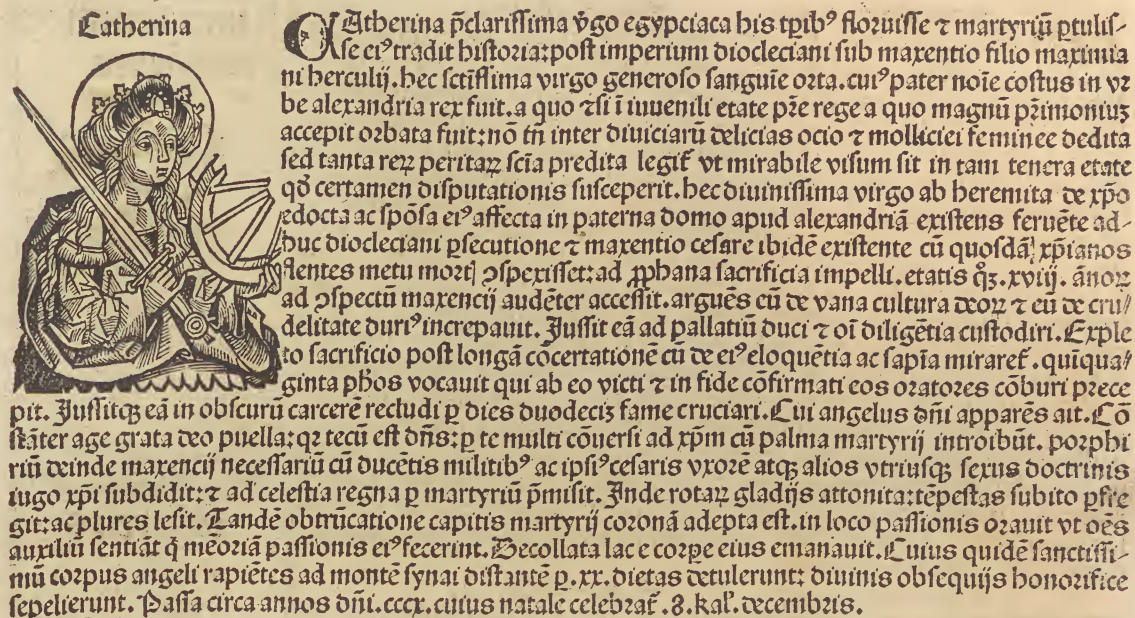 Catherina
CAtherina p̄clarissima v̓go egypciaca his tꝑib⁹ floruisse ⁊ martyriū ꝑtulis-
se ei⁹ tradit historia: post imperium diocleciani sub maxentio filio maximia
ni herculij. hec sctīssima virgo generoso sanguīe orta. cui⁹ pater noīe costus in vr
be alexandria rex fuit. a quo ⁊si ī iuuenili etate pr̄e rege a quo magnū pr̄imoniuʒ
accepit orbata fuit: nō tn̄ inter diuiciarū delicias ocio ⁊ molliciei feminee dedita
sed tanta reꝝ peritaꝝ scīa predita legit̄ vt mirabile visum sit in tam tenera etate
qď certamen disputationis susceperit. hec diuinissima virgo ab heremita de xp̄o
edocta ac spōsa ei⁹ affecta in paterna domo apud alexandriā existens feruēte ad-
huc diocleciani ꝑsecutione ⁊ maxentio cesare ibidē existente cū quosdā xp̄ianos
flentes metu mortꝭ ꝯspexisset: ad ꝓphana sacrificia impelli. etatis qʒ. xviij. ānoꝝ
ad ꝯspectū maxencij audēter accessit. arguēs eū de vana cultura deoꝝ ⁊ eū de cru-
delitate duri⁹ increpauit. Jussit eā ad pallatiū duci ⁊ oī diligētia custodiri. Exple
to sacrificio post longā cōcertationē cū de ei⁹ eloquētia ac sapīa miraret̄. quīqua-
ginta ph̄os vocauit qui ab eo victi ⁊ in fide cōfirmati eos oratores cōburi prece
pit. Jussitqʒ eā in obscurū carcerē recludi ꝑ dies duodecis fame cruciari. Cui angelus dn̄i apparēs ait. Cō
stāter age grata deo puella: qꝛ tecū est dn̄s: ꝑ te multi cōuersi ad xp̄m cū palma martyrij introibūt. porphi
riū deinde maxencij necessariū cū ducētis militib⁹ ac ipsi⁹ cesaris vxorē atqʒ alios vtriusqʒ sexus doctrinis
iugo xp̄i subdidit: ⁊ ad celestia regna ꝑ martyriū p̄misit. Inde rotaꝝ gladijs attonita: tēpestas subito ꝑfre
git: ac plures lesit. Tandē obtrūcatione capitis martyrij coronā adepta est. in loco passionis orauit vt oēs
auxiliū sentiāt q̄ mēoriā passionis ei⁹ fecerint. Decollata lac e corꝑe eius emanauit. Cuius quidē sanctissi-
mū corpus angeli rapiētes ad montē synai distantē ꝑ. xx. dietas detulerunt: diuinis obsequijs honorifice
sepelierunt. Passa circa annos dn̄i. cccx. cuius natale celebrat̄. 8. kal̄. decembris.